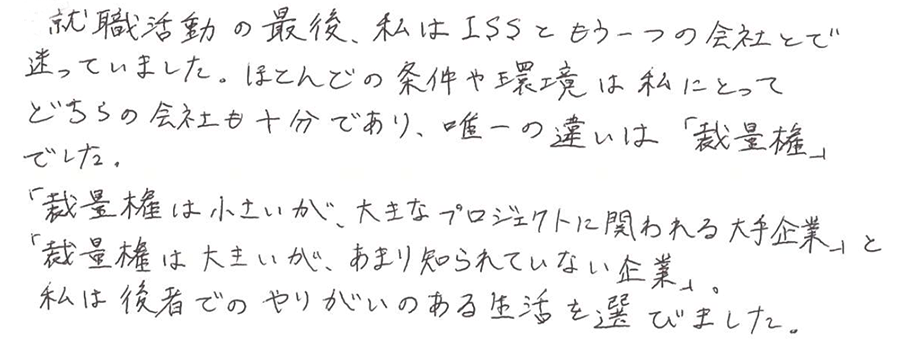 就職活動の最後、私はISSともう一つの会社とで
迷っていました。ほとんどの条件や環境は私にとって
どちらの会社も十分であり、唯一の違いは「裁量権」
でした。
「裁量権は小さいが、大きなプロジェクトに関われる大手企業」と
「裁量権は大きいが、あまり知られていない企業」。
私は後者でのやりがいのある生活を選びました。